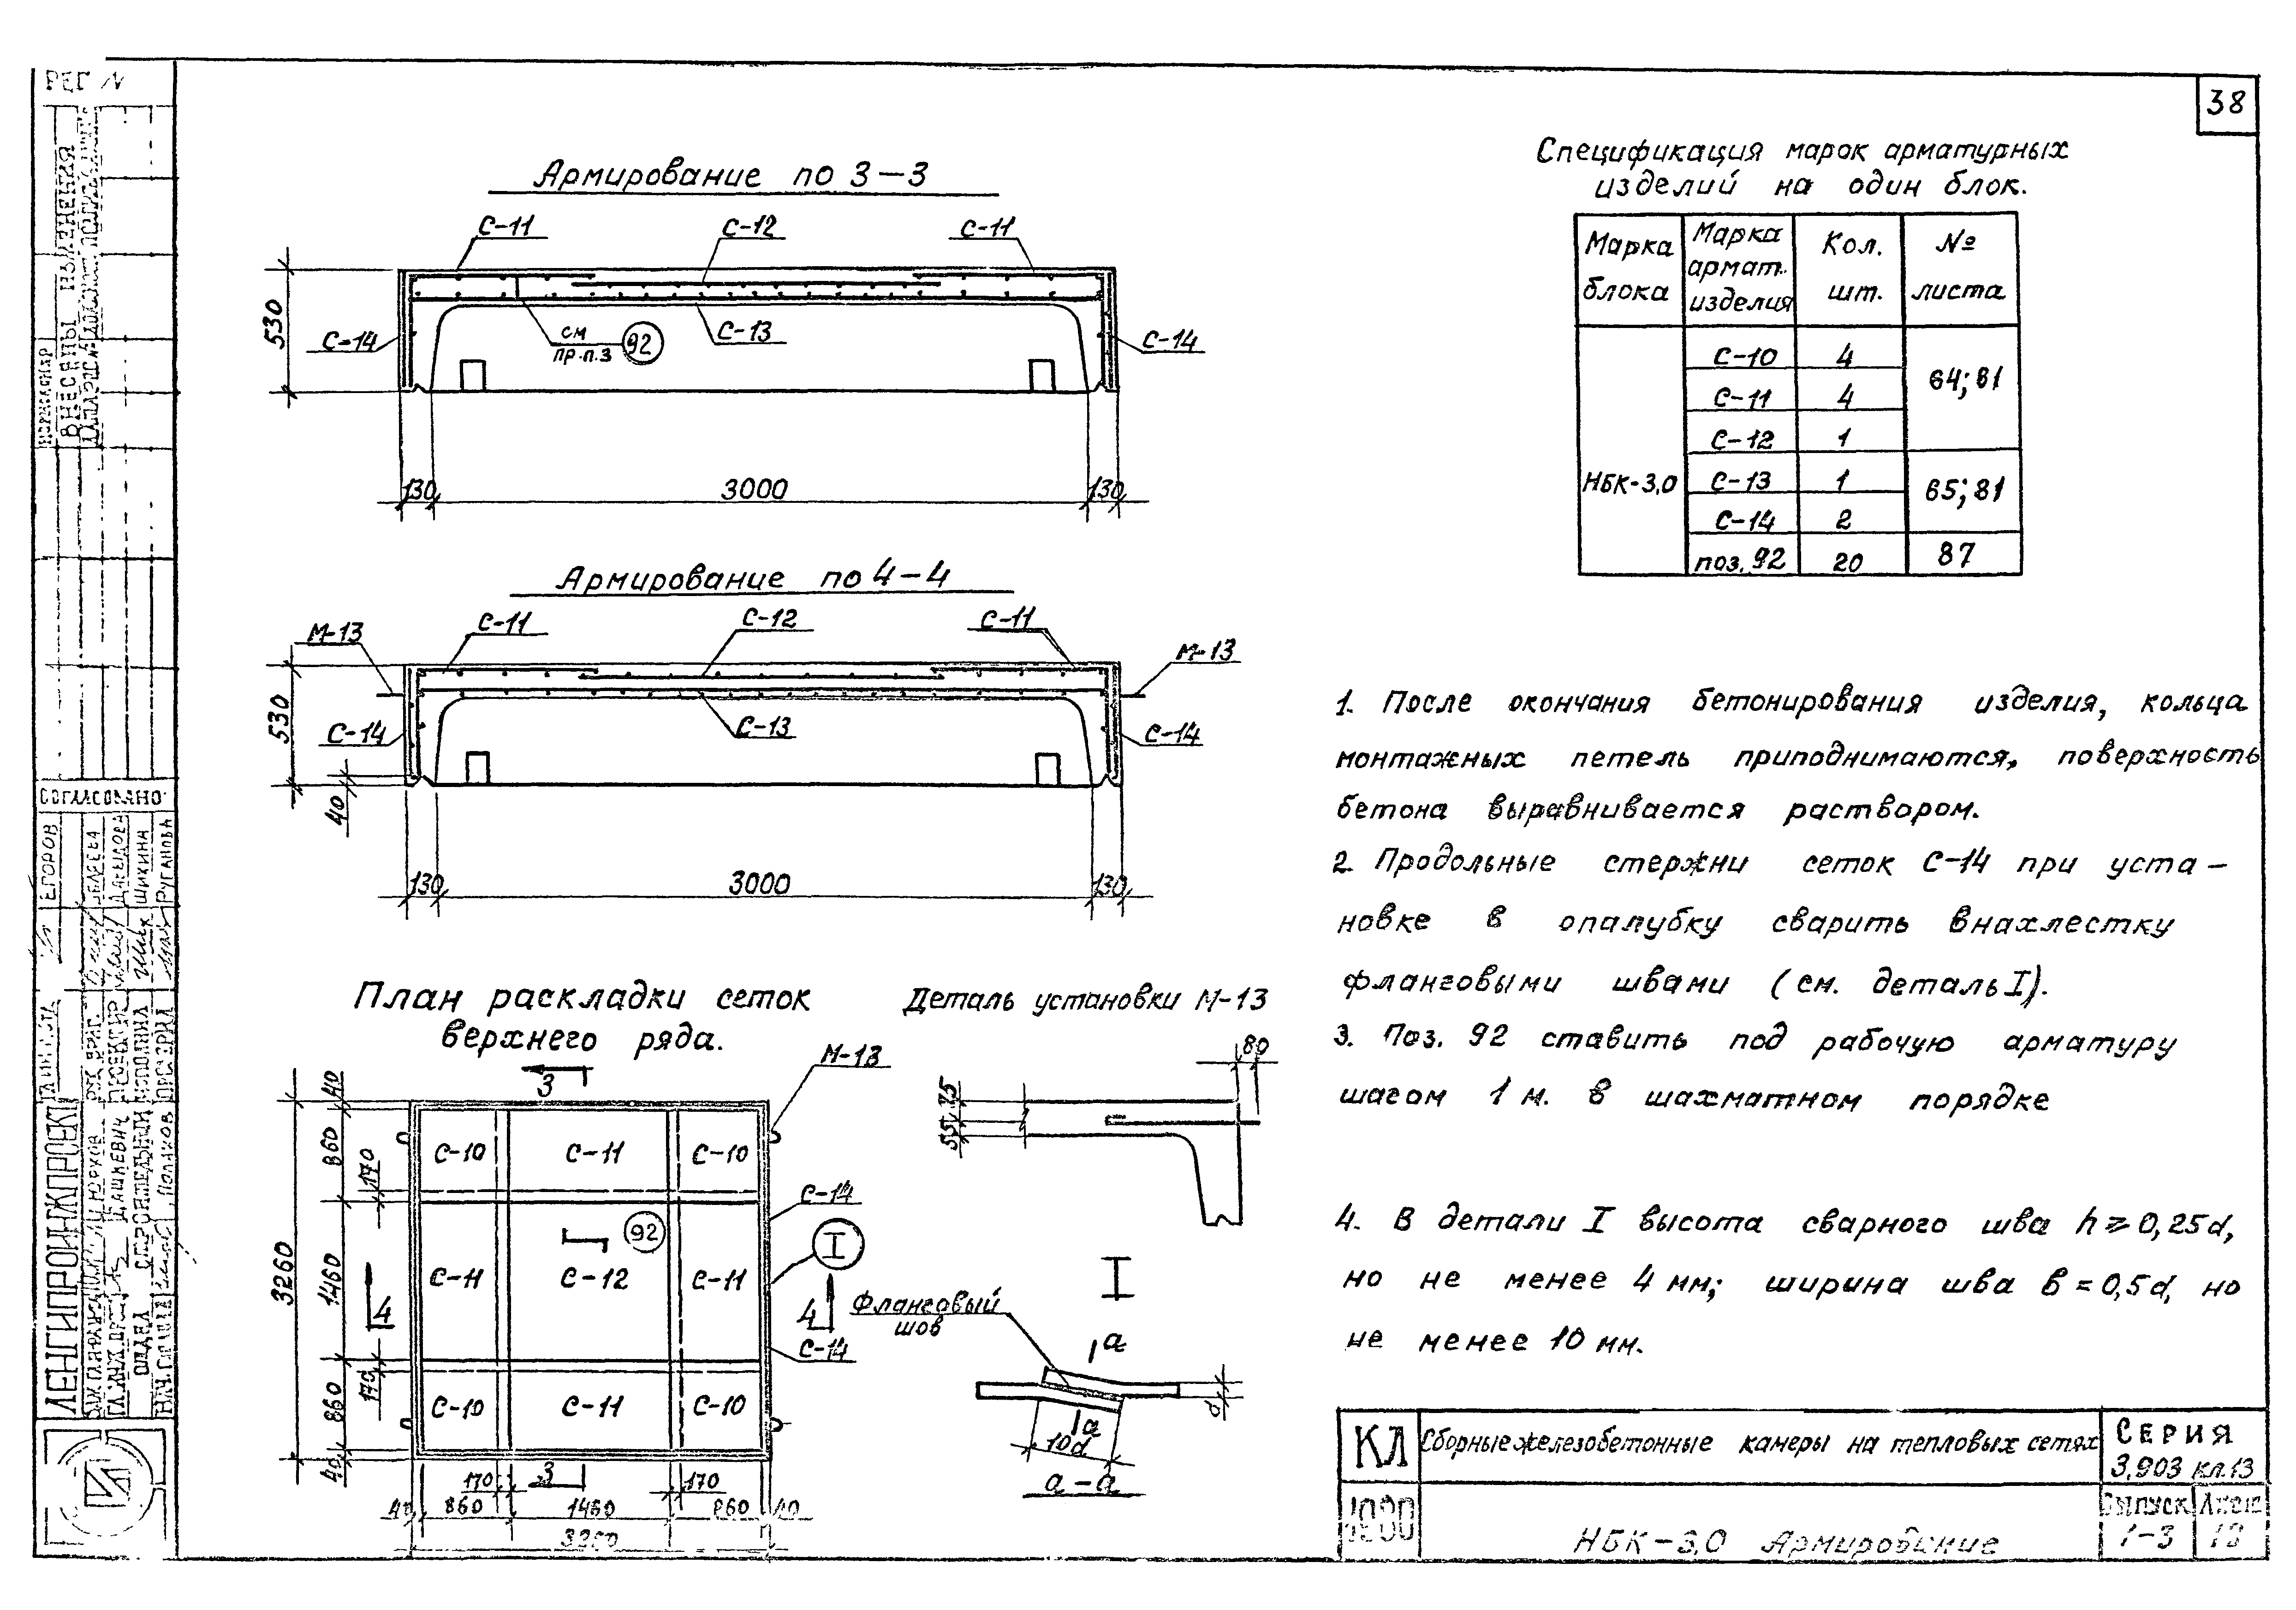 38
Армирование по 3-3
С-11
С-12
С-11
530
С-14
см
пр.п.3
92
С-13
С-14
130
3000
130
Армирование по 4-4
М-13
С-11
С-12
С-11
М-13
530
С-14
С-13
С-14
40
130
3000
130
План раскладки сеток
верхнего ряда.
3
М-13
40
860
170
1460
3260
170
860
40
С-10
С-11
С-10
С-14
92
I
С-11
С-12
С-11
4
4
С-14
С-10
С-11
С-10
3
170
170
40
860
1460
860
40
3260
Деталь установки М-13
80
75
55
I
Фланговый
шов
а
а
d
10d
а-а
Спецификация марок арматурных
изделий на один блок.
Марка блока
Марка армат. изделия
Кол. шт.
№ листа
НБК-3,0
С-10 4
64; 81
С-11 4
С-12 1
С-13 1
65; 81
С-14 2
поз. 92 20 87
1. После окончания бетонирования изделия, кольца
монтажных петель приподнимаются, поверхность
бетона выравнивается раствором.
2. Продольные стержни сеток С-14 при уста-
новке в опалубку сварить внахлестку
фланговыми швами (см. деталь I).
3. Поз. 92 ставить под рабочую арматуру
шагом 1 м. в шахматном порядке
4. В детали I высота сварного шва h ⩾ 0,25d,
но не менее 4 мм; ширина шва в = 0,5d, но
не менее 10 мм.
КЛ
Сборные железобетонные камеры на тепловых сетях
СЕРИЯ
3.903 кл.13
НБК-3,0 Армирование
Выпуск
1-3
Лист
РЕГ N
ВНЕСЕНЫ ИЗМЕНЕНИЯ
СОГЛАСОВАНО:
ЕГОРОВ
ШИКИНА
ЛЕНГИПРОИНЖПРОЕКТ
ДАШКЕВИЧ
ОТДЕЛ СТРОИТЕЛЬНЫЙ
ПОЛЯКОВ
ИСПОЛНИЛ